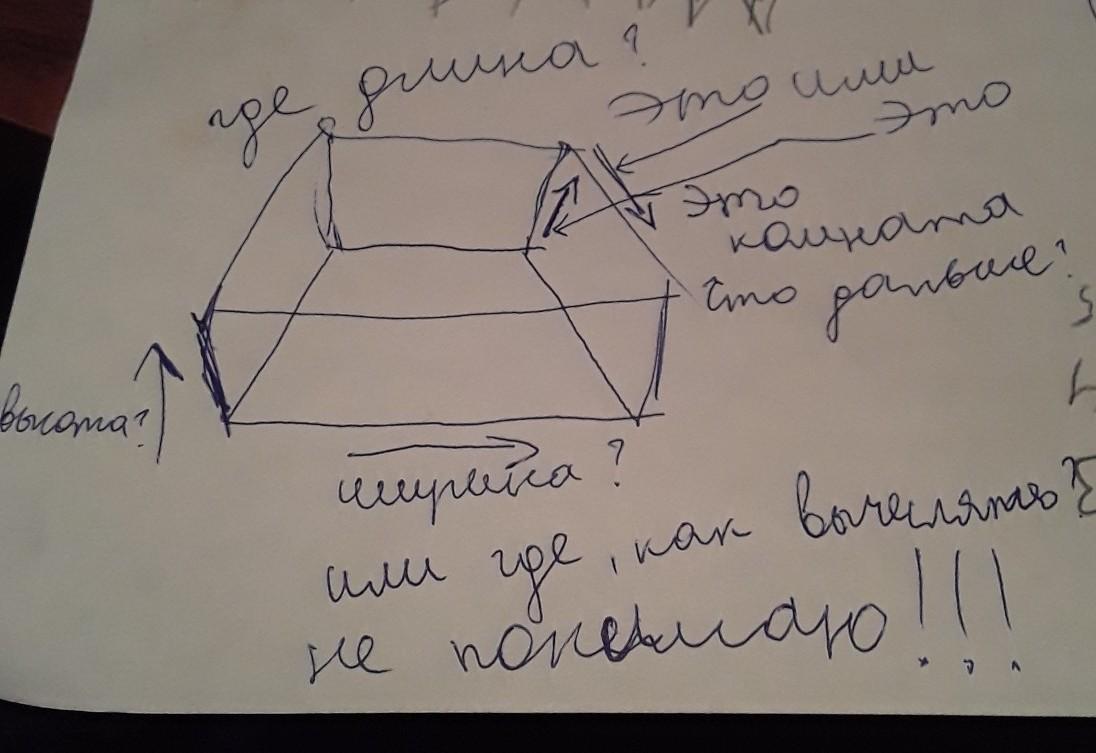 где длина?
это или
это
это
комната
что дальше?
высота?
ширина?
или где, как вычислять?
не понимаю!!!